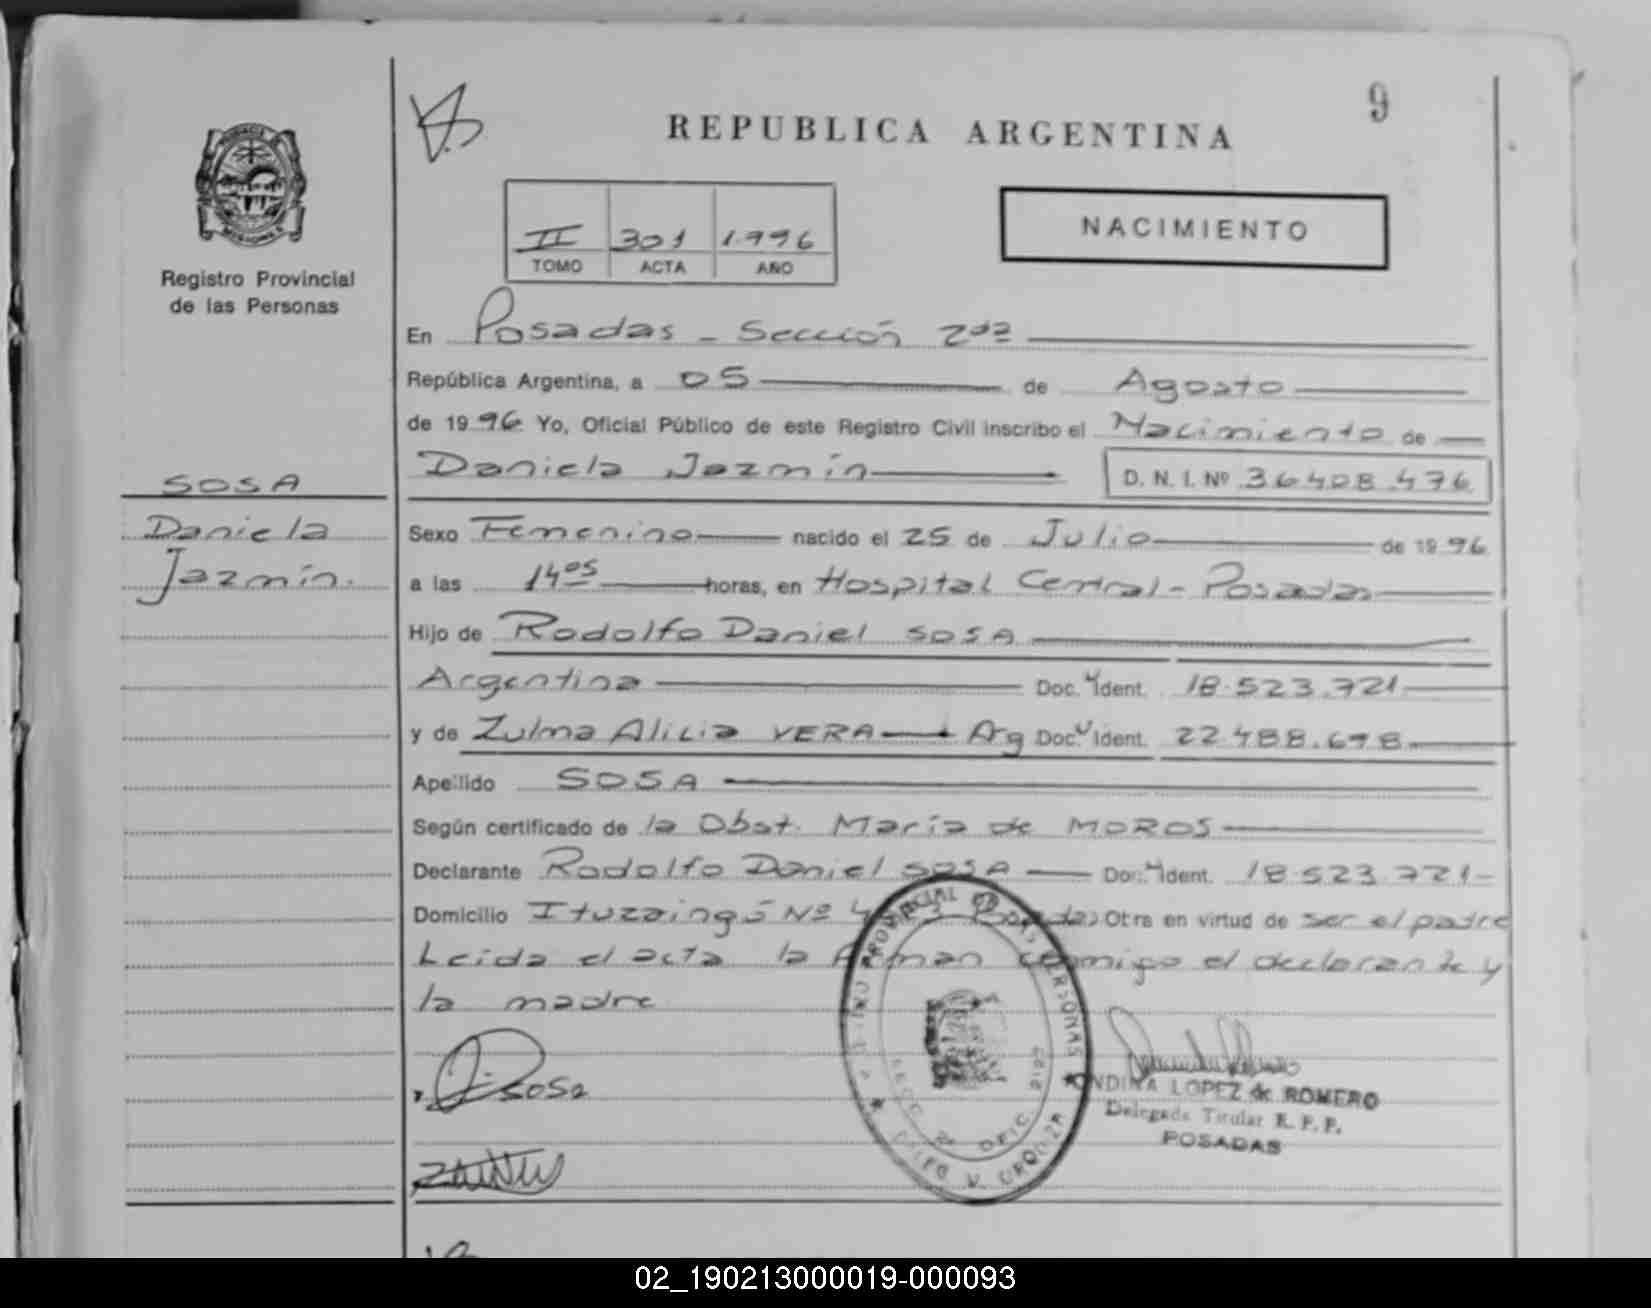 9
REPUBLICA ARGENTINA
MISIONES
II 301 1996
TOMO ACTA AÑO
NACIMIENTO
Registro Provincial
de las Personas
En Posadas - Sección 2da
República Argentina, a 05 de Agosto
de 1996 Yo, Oficial Público de este Registro Civil inscribo el Nacimiento de
Daniela Jazmín D. N. I. Nº 36.408.476
SOSA
Daniela
Jazmín.
Sexo Femenino nacido el 25 de Julio de 1996
a las 14 05 horas, en Hospital Central - Posadas
Hijo de Rodolfo Daniel SOSA
Argentina Doc. Ident. 18.523.721
y de Zulma Alicia VERA Arg Doc. Ident. 22.488.698
Apellido SOSA
Según certificado de la Obst. María de MOROS
Declarante Rodolfo Daniel SOSA Doc. Ident. 18.523.721-
Domicilio Ituzaingó Nº Posadas Otra en virtud de ser el padre
Leida el acta la firman conmigo el declarante y
la madre
Sosa
ONDINA LOPEZ de ROMERO
Delegada Titular R. P. P.
POSADAS
02_190213000019-000093